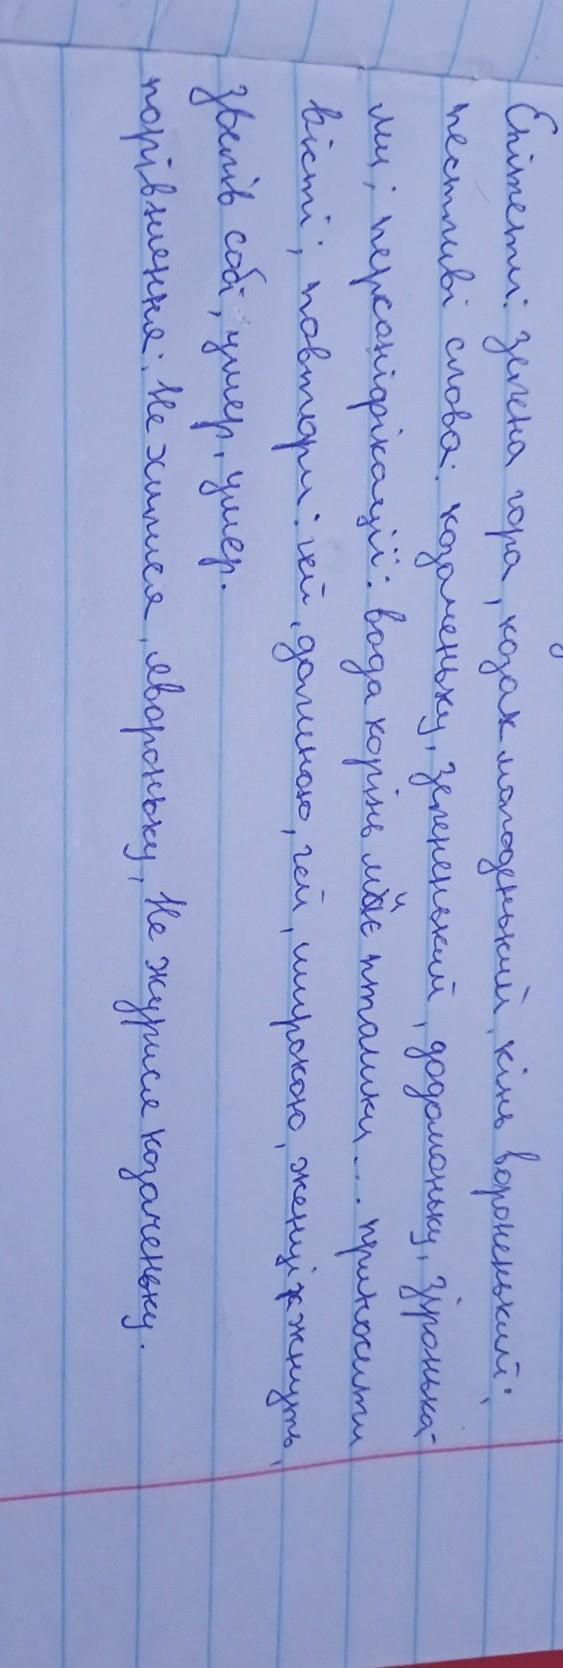 Епітети: зелена гора, козак молоденький, кінь вороненький;
пестливі слова: козаченьку, зелененький, додомоньку, зіронька-
ми; персоніфікації: вода корінь миє, пташки... приносити
вісті; повтори: гей, долиною, гей, широкою, женці жнуть,
звелів собі, умер, умер.
порівняння: Не хилися, явороньку, Не журися козаченьку.